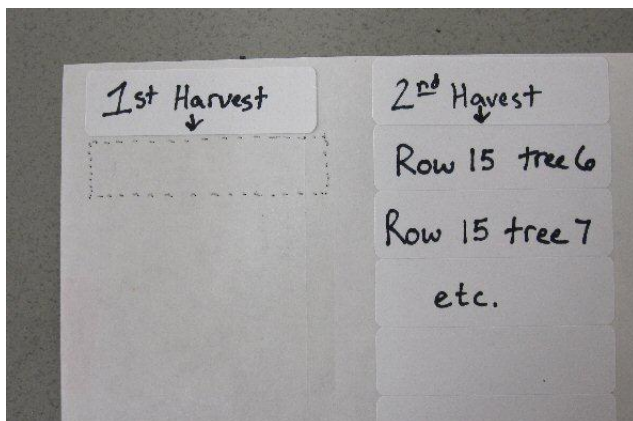 1st Harvest
↓
2nd Havest
↓
Row 15 tree 6
Row 15 tree 7
etc.